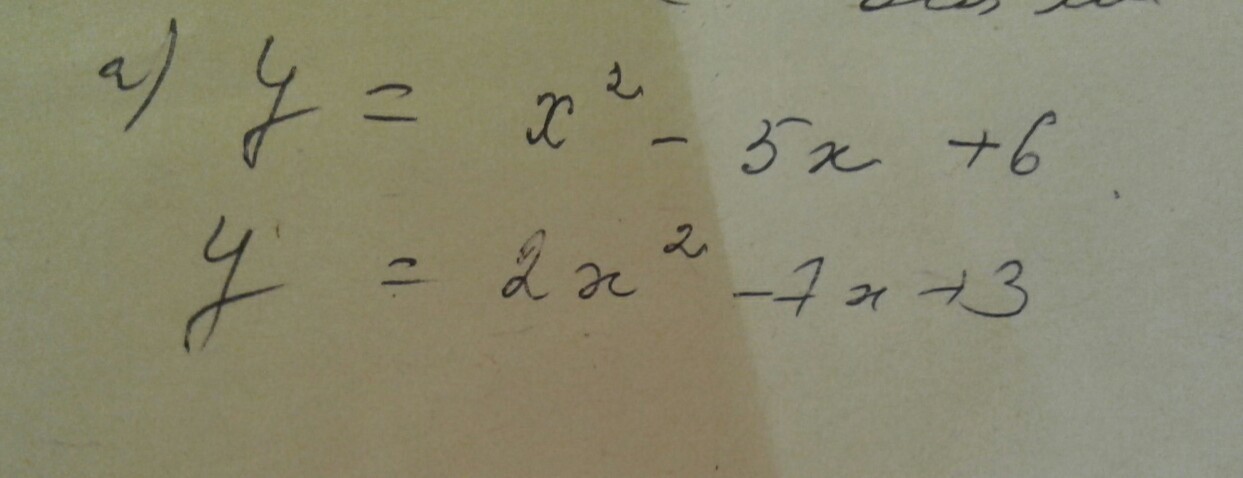 a) y = x² - 5x + 6
y = 2x² - 7x + 3